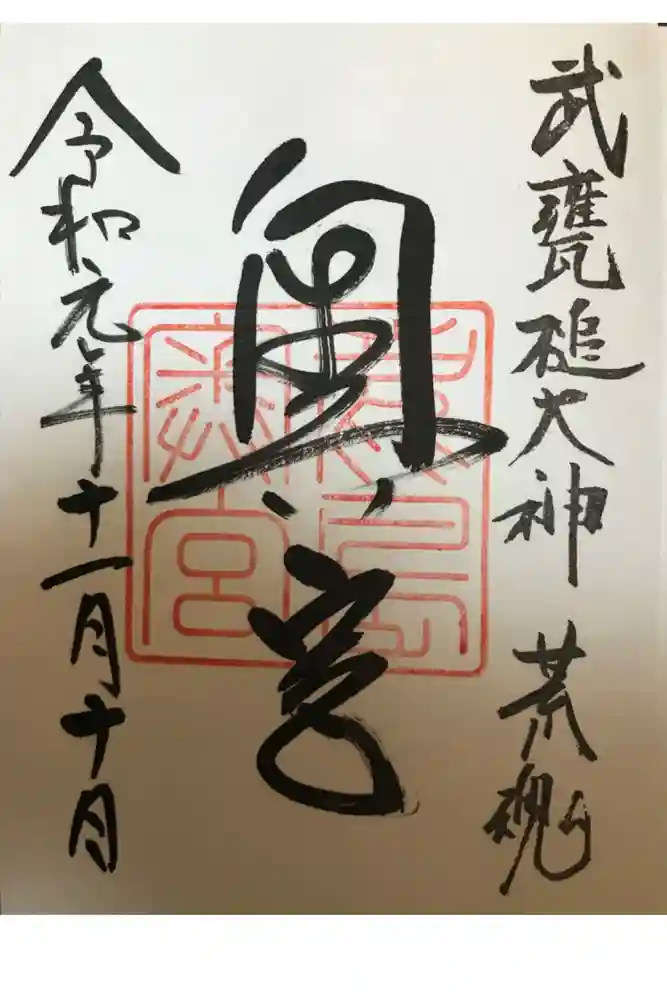 武甕槌大神 荒魂
奥宮
令和元年十一月十日
鹿島
奥宮